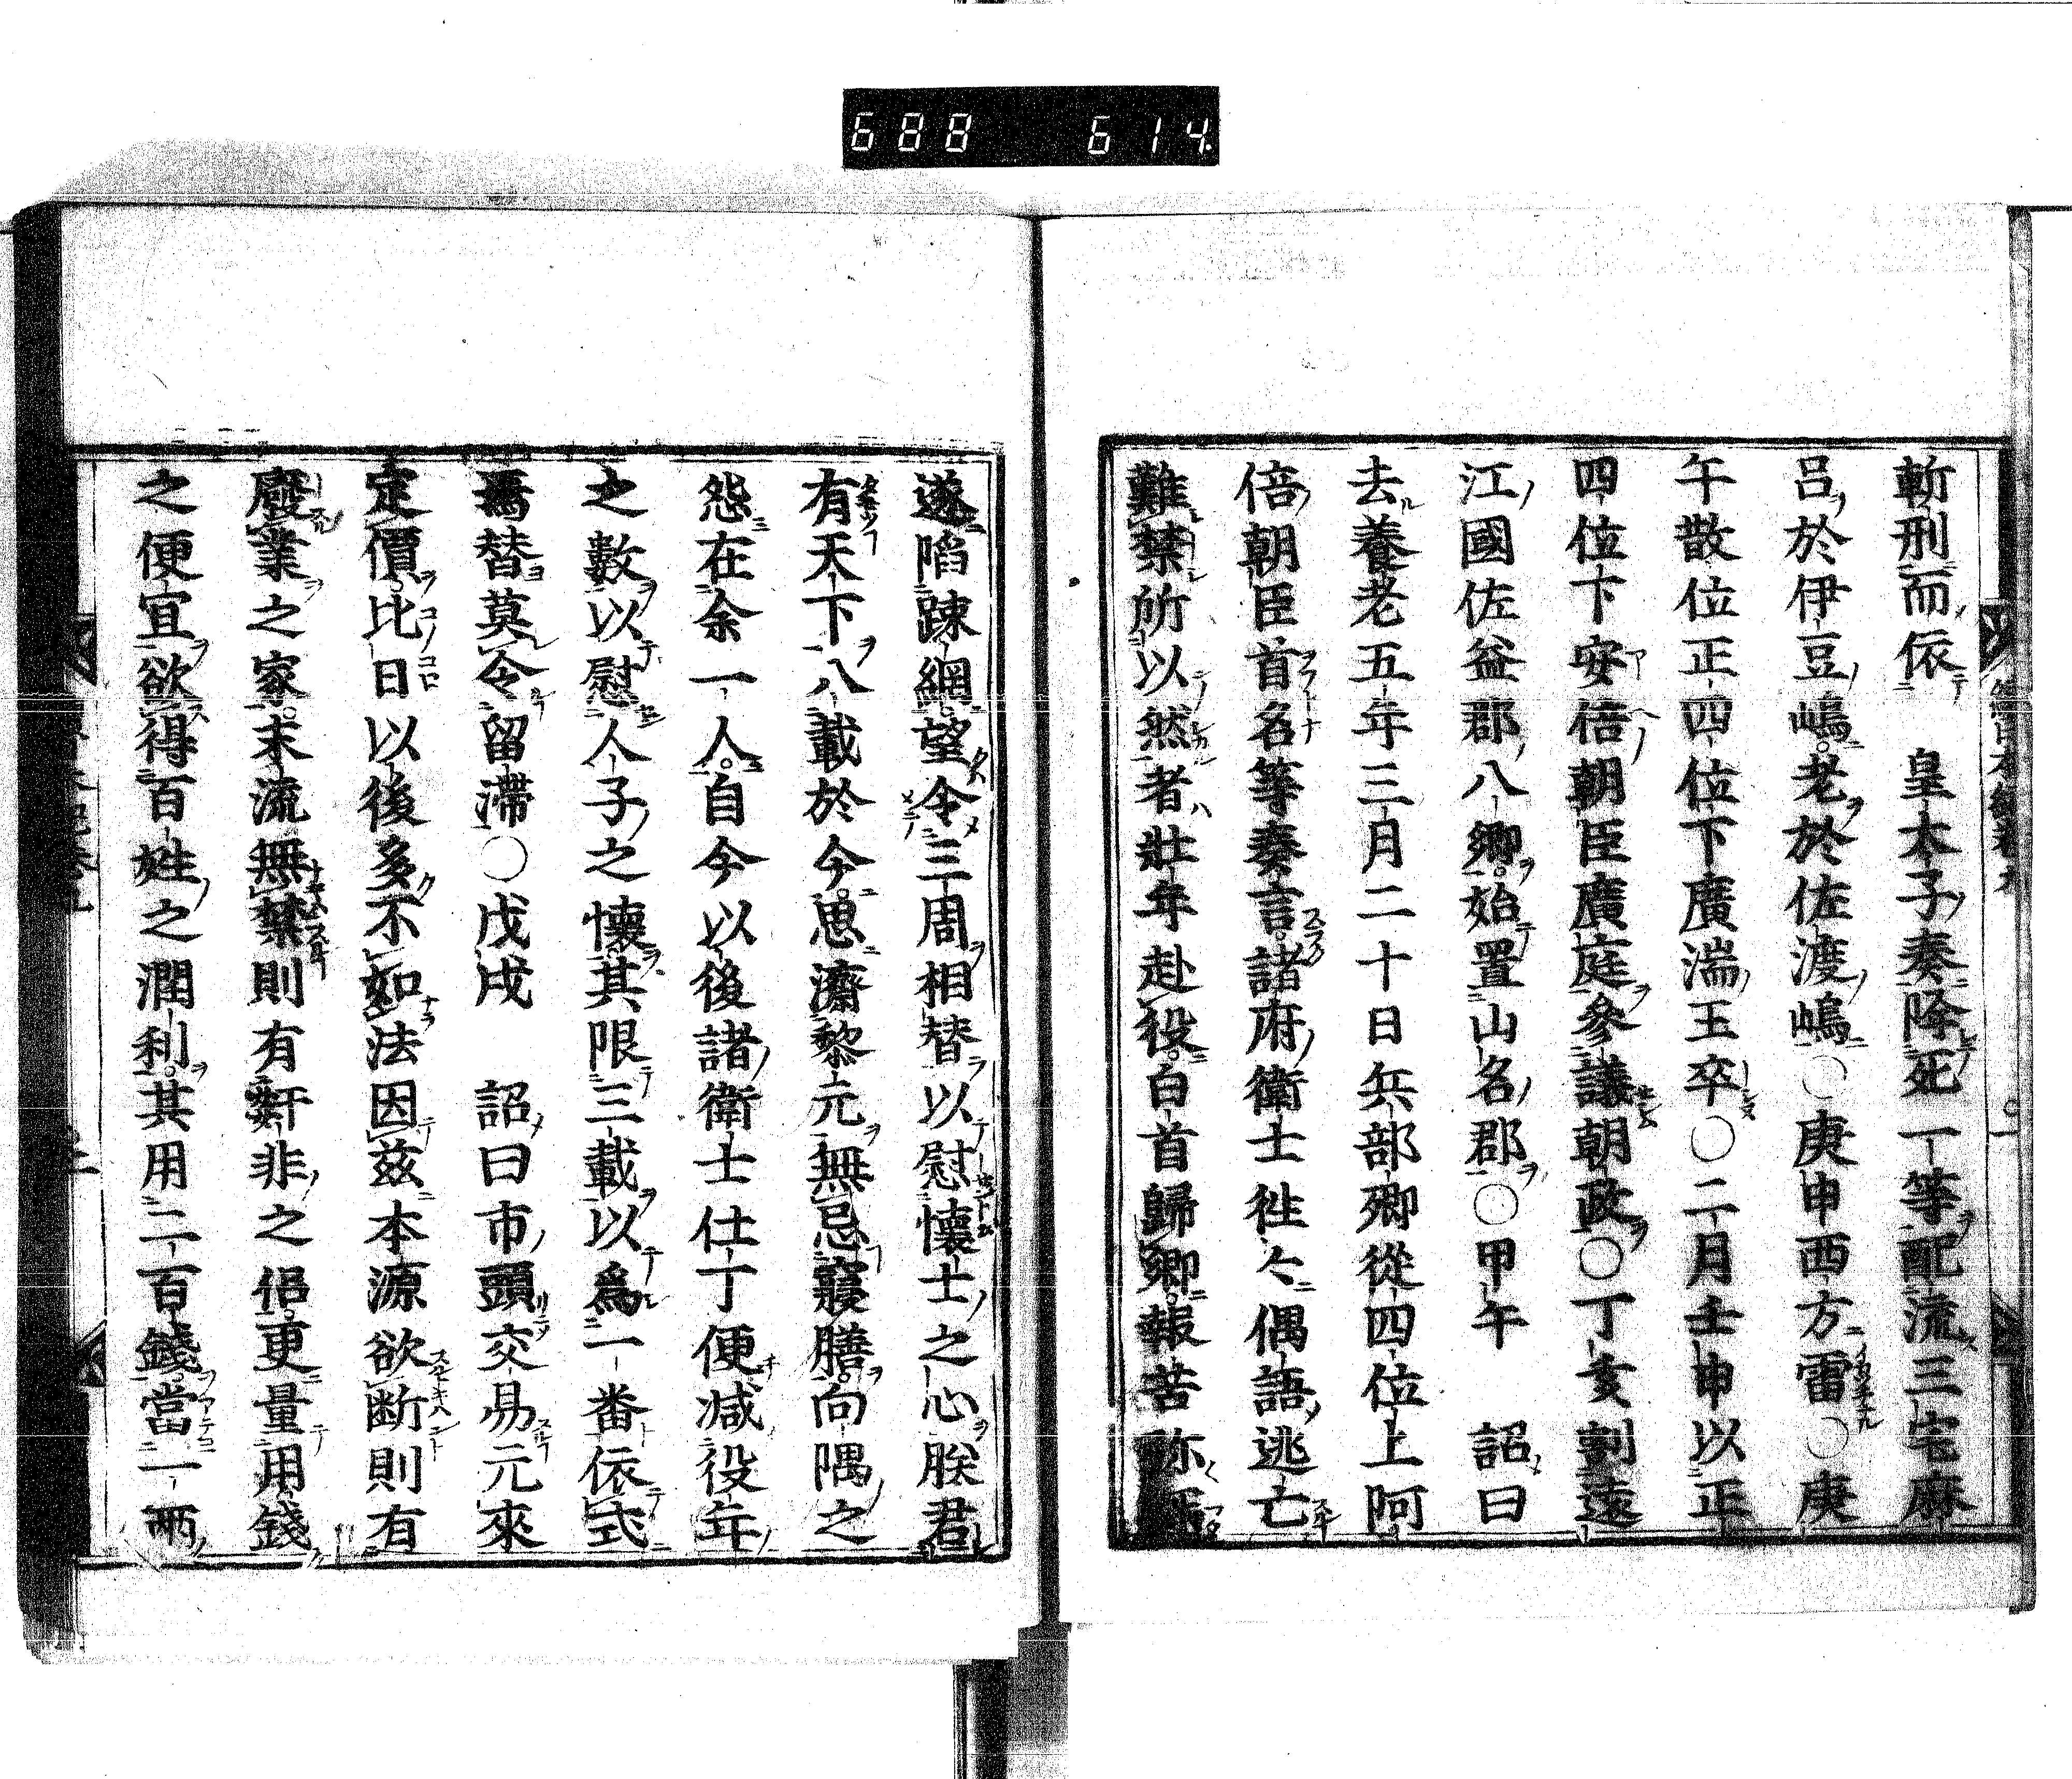 688 614.
斬刑而依 皇太子奏降死一等配流三宅麻
呂於伊豆嶋老於佐渡嶋○庚申西方雷○庚
午散位正四位下廣湍王卒○二月壬申以正
四位下安倍朝臣廣庭參議朝政○丁亥割遠
江國佐益郡八郷始置山名郡○甲午 詔曰
去養老五年三月二十日兵部卿從四位上阿
倍朝臣首名等奏言諸府衛士徃々偶語逃亡
難禁所以然者壯年赴役白首歸郷報苦弥
遂陷踈網望令三周相替以慰懷士之心朕君
有天下八載於今思濟黎元無忌寢膳向隅之
怨在余一人自今以後諸衛士仕丁便减役年
之數以慰人子之懷其限三載以爲一番依式
爲替莫令留滯○戊戌 詔曰市頭交易元來
定價比日以後多不如法因茲本源欲断則有
廢業之家末流無禁則有姧非之侶更量用錢
之便宜欲得百姓之潤利其用二百錢當一兩